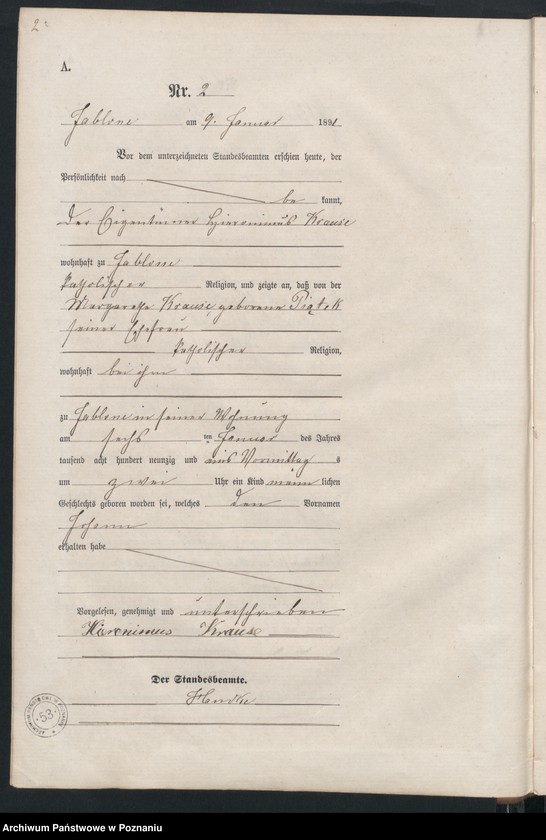 2
A.
Nr. 2
Jablone am 9. Januar 1891
Vor dem unterzeichneten Standesbeamten erschien heute, der
Persönlichkeit nach
be kannt,
der Eigenthümer Hieronimus Krause
wohnhaft zu Jablone
katholischer Religion, und zeigte an, daß von der
Margarethe Krause, geborene Piątek
seiner Ehefrau
katholischer Religion,
wohnhaft bei ihm
zu Jablone in seiner Wohnung
am sechs ten Januar des Jahres
tausend acht hundert neunzig und eins Vormittag s
um zwei Uhr ein Kind männ lichen
Geschlechts geboren worden sei, welches den Vornamen
Johann
erhalten habe
Vorgelesen, genehmigt und unterschrieben
Hieronimus Krause
Der Standesbeamte.
53
Archiwum Państwowe w Poznaniu